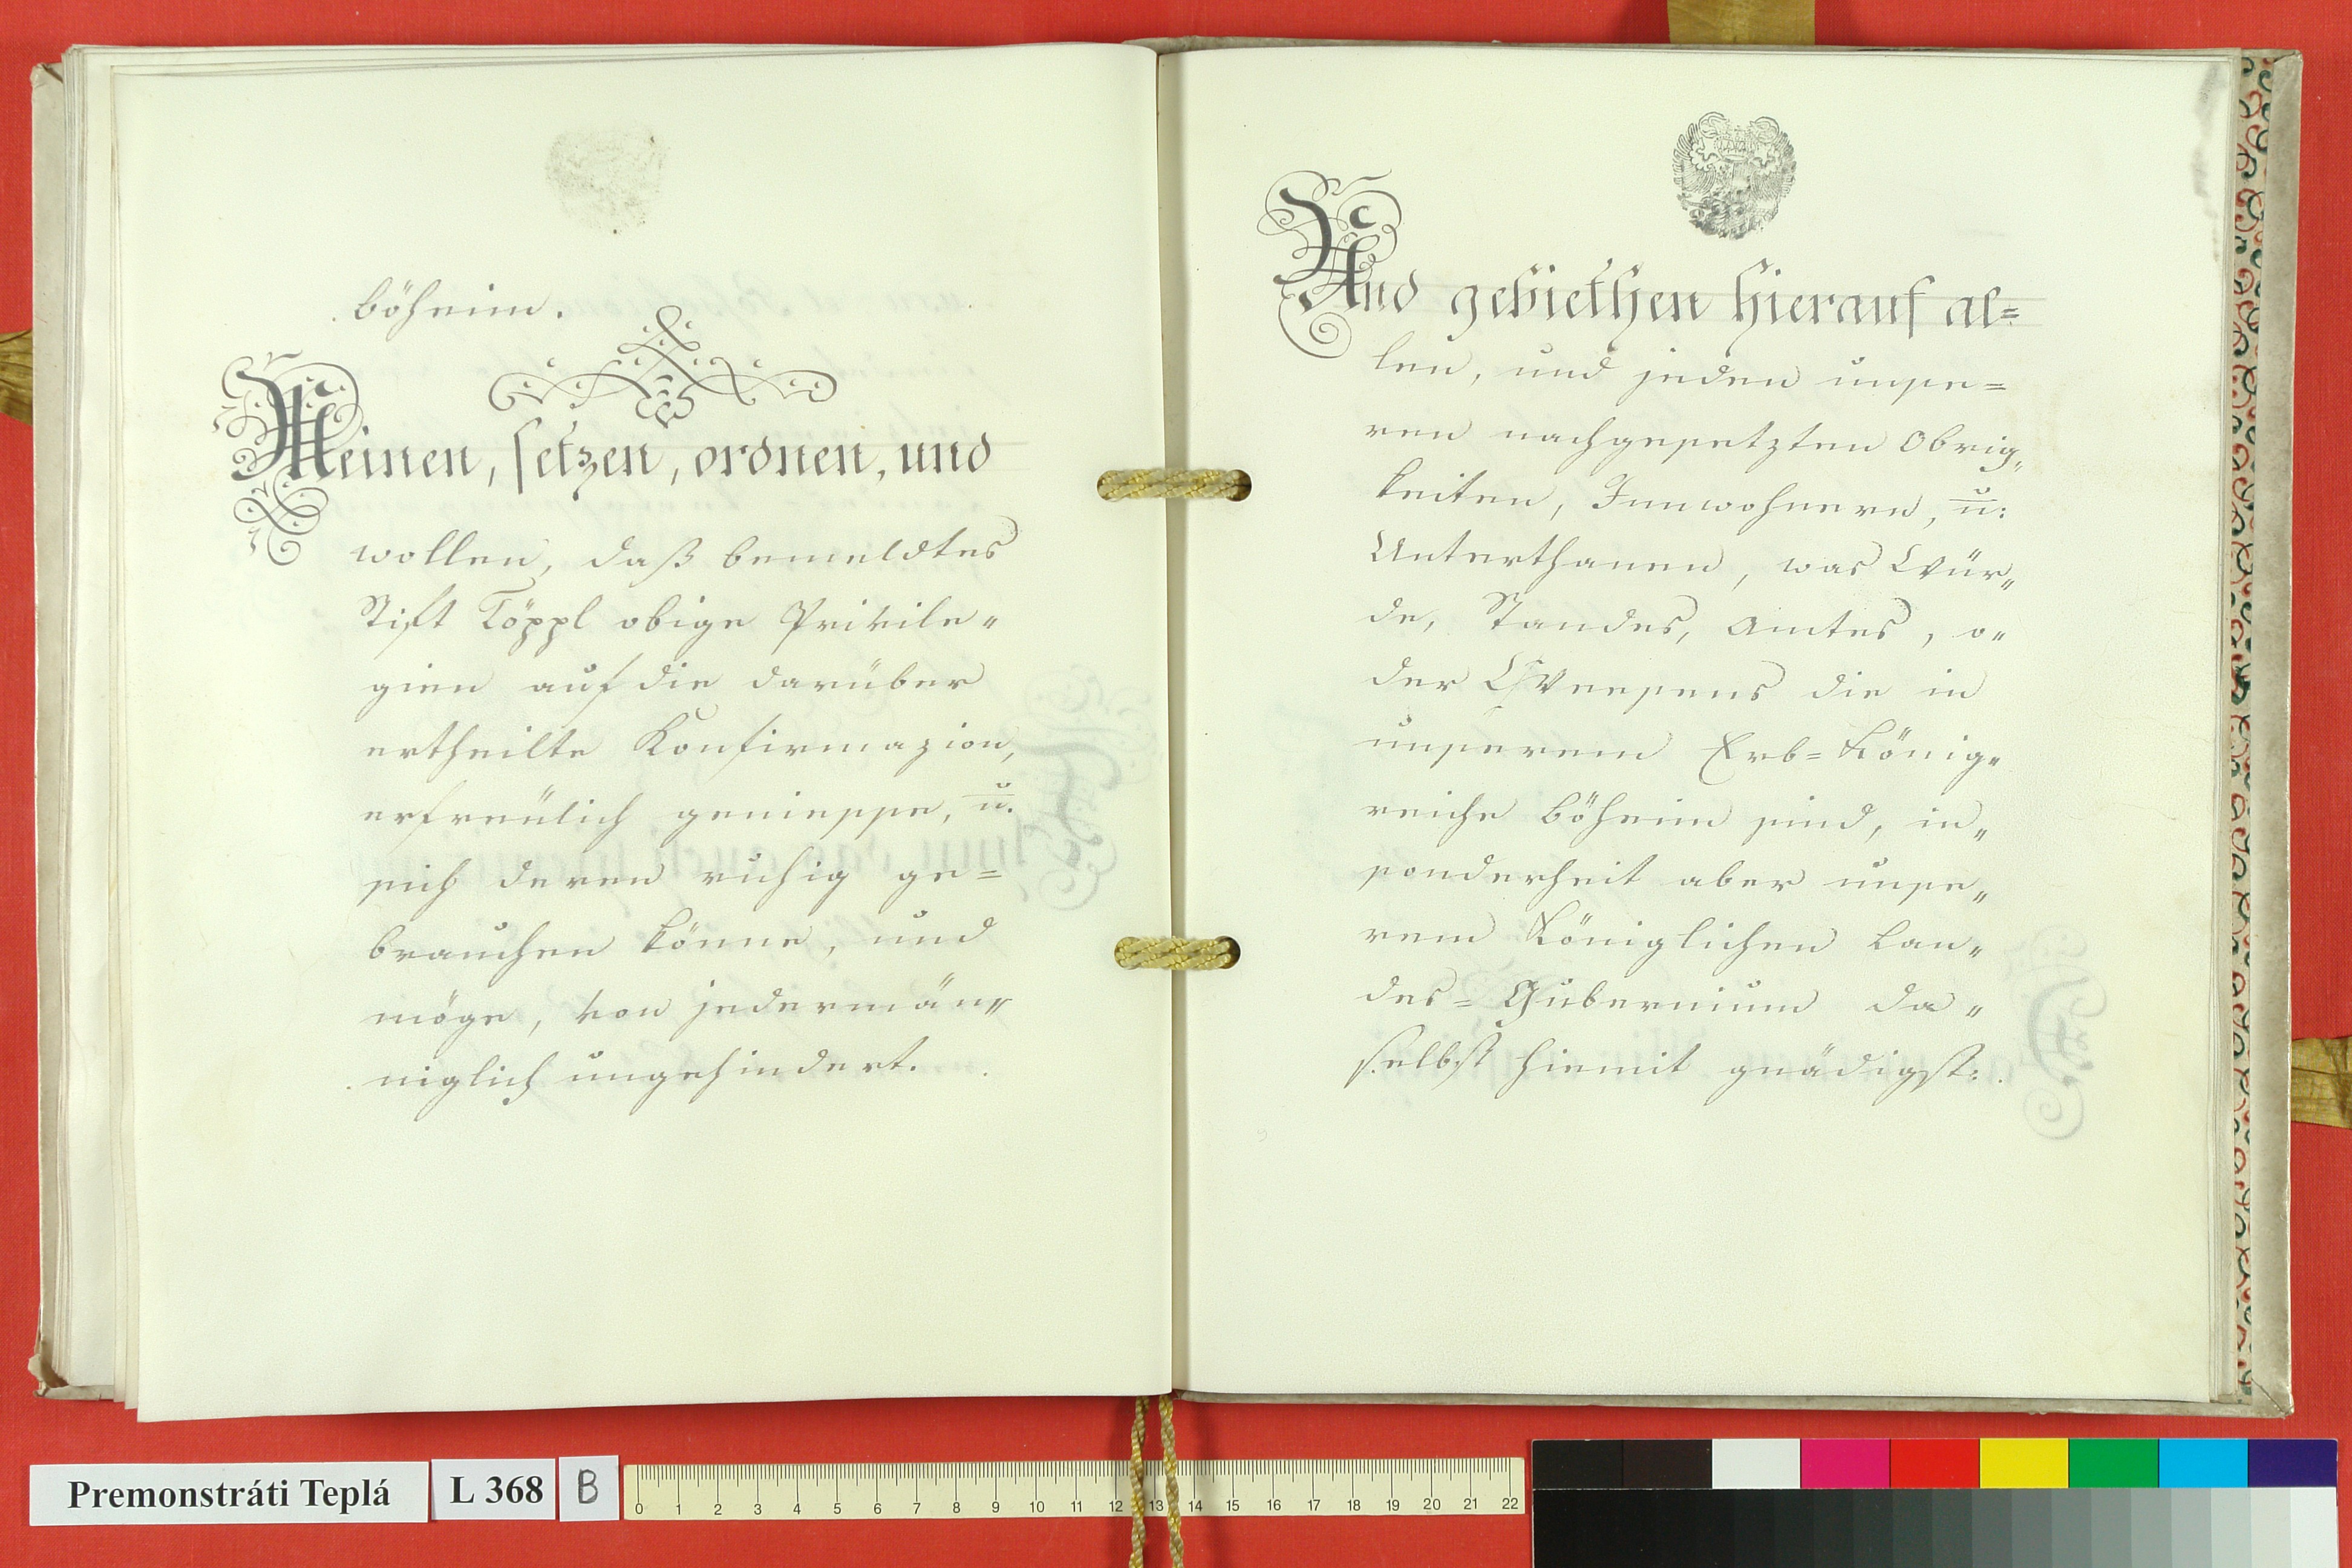 böheim.
Meinen, setzen, ordnen, und
wollen, daß bemeldtes
Stift Töppl obige Privile„
gien auf die darüber
ertheilte Konfirmazion,
erfreülich geniesse, u.
sich deren ruhig ge=
brauchen könne, und
möge, von jedermän„
niglich ungehindert.
Und gebiethen hierauf al=
len, und jeden unse=
ren nachgesetzten Obrig„
keiten, Innwohnern, u:
Unterthanen, was Wür„
de, Standes, Amtes, o„
der Weesens die in
unserem Erb=König„
reiche Böheim sind, in„
sonderheit aber unse„
rem Königlichen Lan„
des=Gubernium da„
selbst hiemit gnädigst:
Premonstráti Teplá L 368 B
0 1 2 3 4 5 6 7 8 9 10 11 12 13 14 15 16 17 18 19 20 21 22